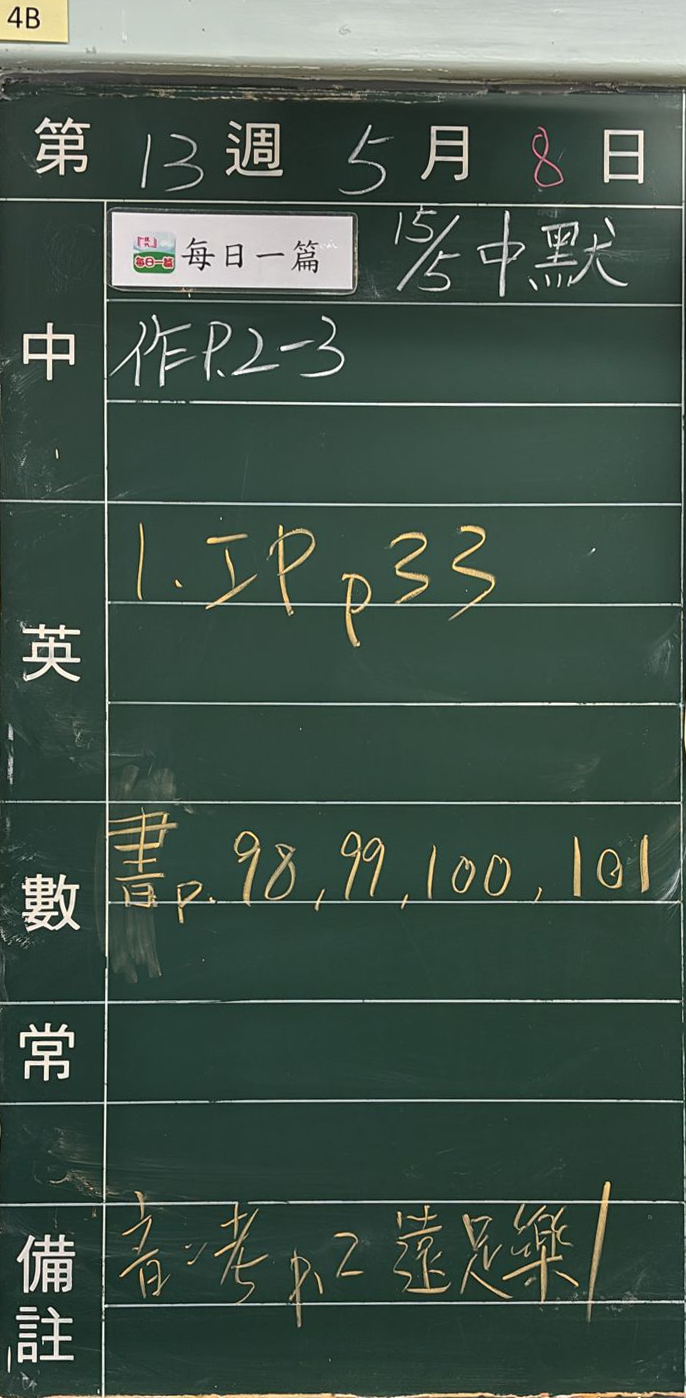 4B
第 13 週 5 月 8 日
中
每日一篇 每日一篇 15/5 中默
作P.2-3
英
1. IP p33
數
書p. 98, 99, 100, 101
常
備註
音:考p.2 遠足樂